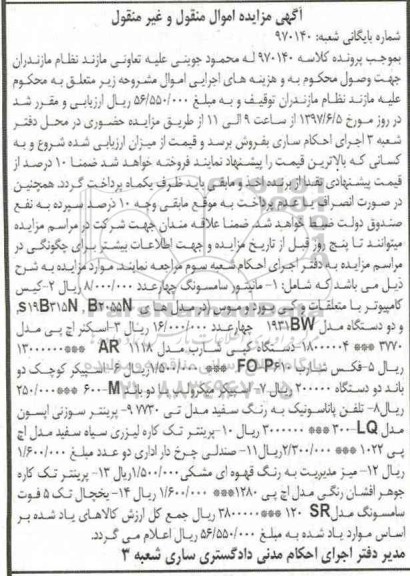 آگهی مزایده اموال منقول و غیر منقول
شماره بایگانی شعبه: ۹۷۰۱۴۰
بموجب پرونده کلاسه ۹۷۰۱۴۰ له محمود جوینی علیه تعاونی مازند نظام مازندران
جهت وصول محکوم به و هزینه های اجرایی اموال مشروحه زیر متعلق به محکوم
علیه مازند نظام مازندران توقیف و به مبلغ ۵۶/۵۵۰/۰۰۰ ریال ارزیابی و مقرر شد
در روز مورخ ۱۳۹۷/۶/۵ از ساعت ۹ الی ۱۱ از طریق مزایده حضوری در محل دفتر
شعبه ۳ اجرای احکام ساری بفروش برسد و قیمت از میزان ارزیابی شده شروع و به
کسانی که بالاترین قیمت را پیشنهاد نمایند فروخته خواهد شد ضمنا ۱۰ درصد از
قیمت پیشنهادی نقدا از برنده اخذ و مابقی باید ظرف یکماه پرداخت گردد. همچنین
در صورت انصراف یا عدم پرداخت به موقع مابقی وجه ۱۰ درصد سپرده به نفع
صندوق دولت ضبط خواهد شد. ضمنا علاقه مندان جهت شرکت در مراسم مزایده
میتوانند تا پنج روز قبل از تاریخ مزایده و جهت اطلاعات بیشتر برای چگونگی در
مراسم مزایده به دفتر اجرای احکام شعبه سوم مراجعه نمایند. موارد مزایده به شرح
ذیل می باشد که شامل: ۱- مانیتور سامسونگ چهارعدد ۸/۰۰۰/۰۰۰ ریال ۲-کیس
کامپیوتر با متعلقات و کی بورد و موس (در مدل های S۱۹B۳۱۵N, B۲۰۵۵N
و دو دستگاه مدل ۱۹۳۱BW چهارعدد ۱۶/۰۰۰/۰۰۰ ریال ۳-اسکنر اچ پی مدل
۳۷۷۰ *** ۱۸۰۰۰۰۰۴ دستگاه کپی شارپ مدل AR ۱۱۱۸ ***۱۳۰۰۰۰۰۰
ریال ۵-فکس شارپ FO-P۶۱۰ *** ۱/۵۰۰/۰۰۰ ریال ۶- اسپیکر کوچک دو
باند دو دستگاه ۲۰۰۰۰۰ ریال ۷- اسپیکر میکرولب با دو باند M-۶۰۰ ***۲۵۰/۰۰۰
ریال۸- تلفن پاناسونیک به رنگ سفید مدل تی ۷۷۳۰ ۹- پرینتر سوزنی اپسون
مدل LQ-۳۰۰ *** ۳۰۰۰۰۰۰ ریال ۱۰-پرینتر تک کاره لیزری سیاه سفید مدل اچ
پی ۱۰۲۲ ***۲/۳۰۰/۰۰۰ریال۱۱- صندلی چرخ دار اداری دو عدد مبلغ ۱/۶۰۰/۰۰۰
ریال ۱۲- میز مدیریت به رنگ قهوه ای مشکی۱/۵۰۰/۰۰۰ریال ۱۳- پرینتر تک کاره
جوهر افشان رنگی مدل اچ پی ۱۲۸۰*** ۱/۶۰۰/۰۰۰ ریال ۱۴- یخچال تک ۵ فوت
سامسونگ مدلSR ۱۲۰ ***۳۸۰۰۰۰۰ ریال جمع کل ارزش کالاهای یاد شده بر
اساس موارد یاد شده به مبلغ ۵۶/۵۵۰/۰۰۰ ریال اعلام می گردد.
مدیر دفتر اجرای احکام مدنی دادگستری ساری شعبه ۳